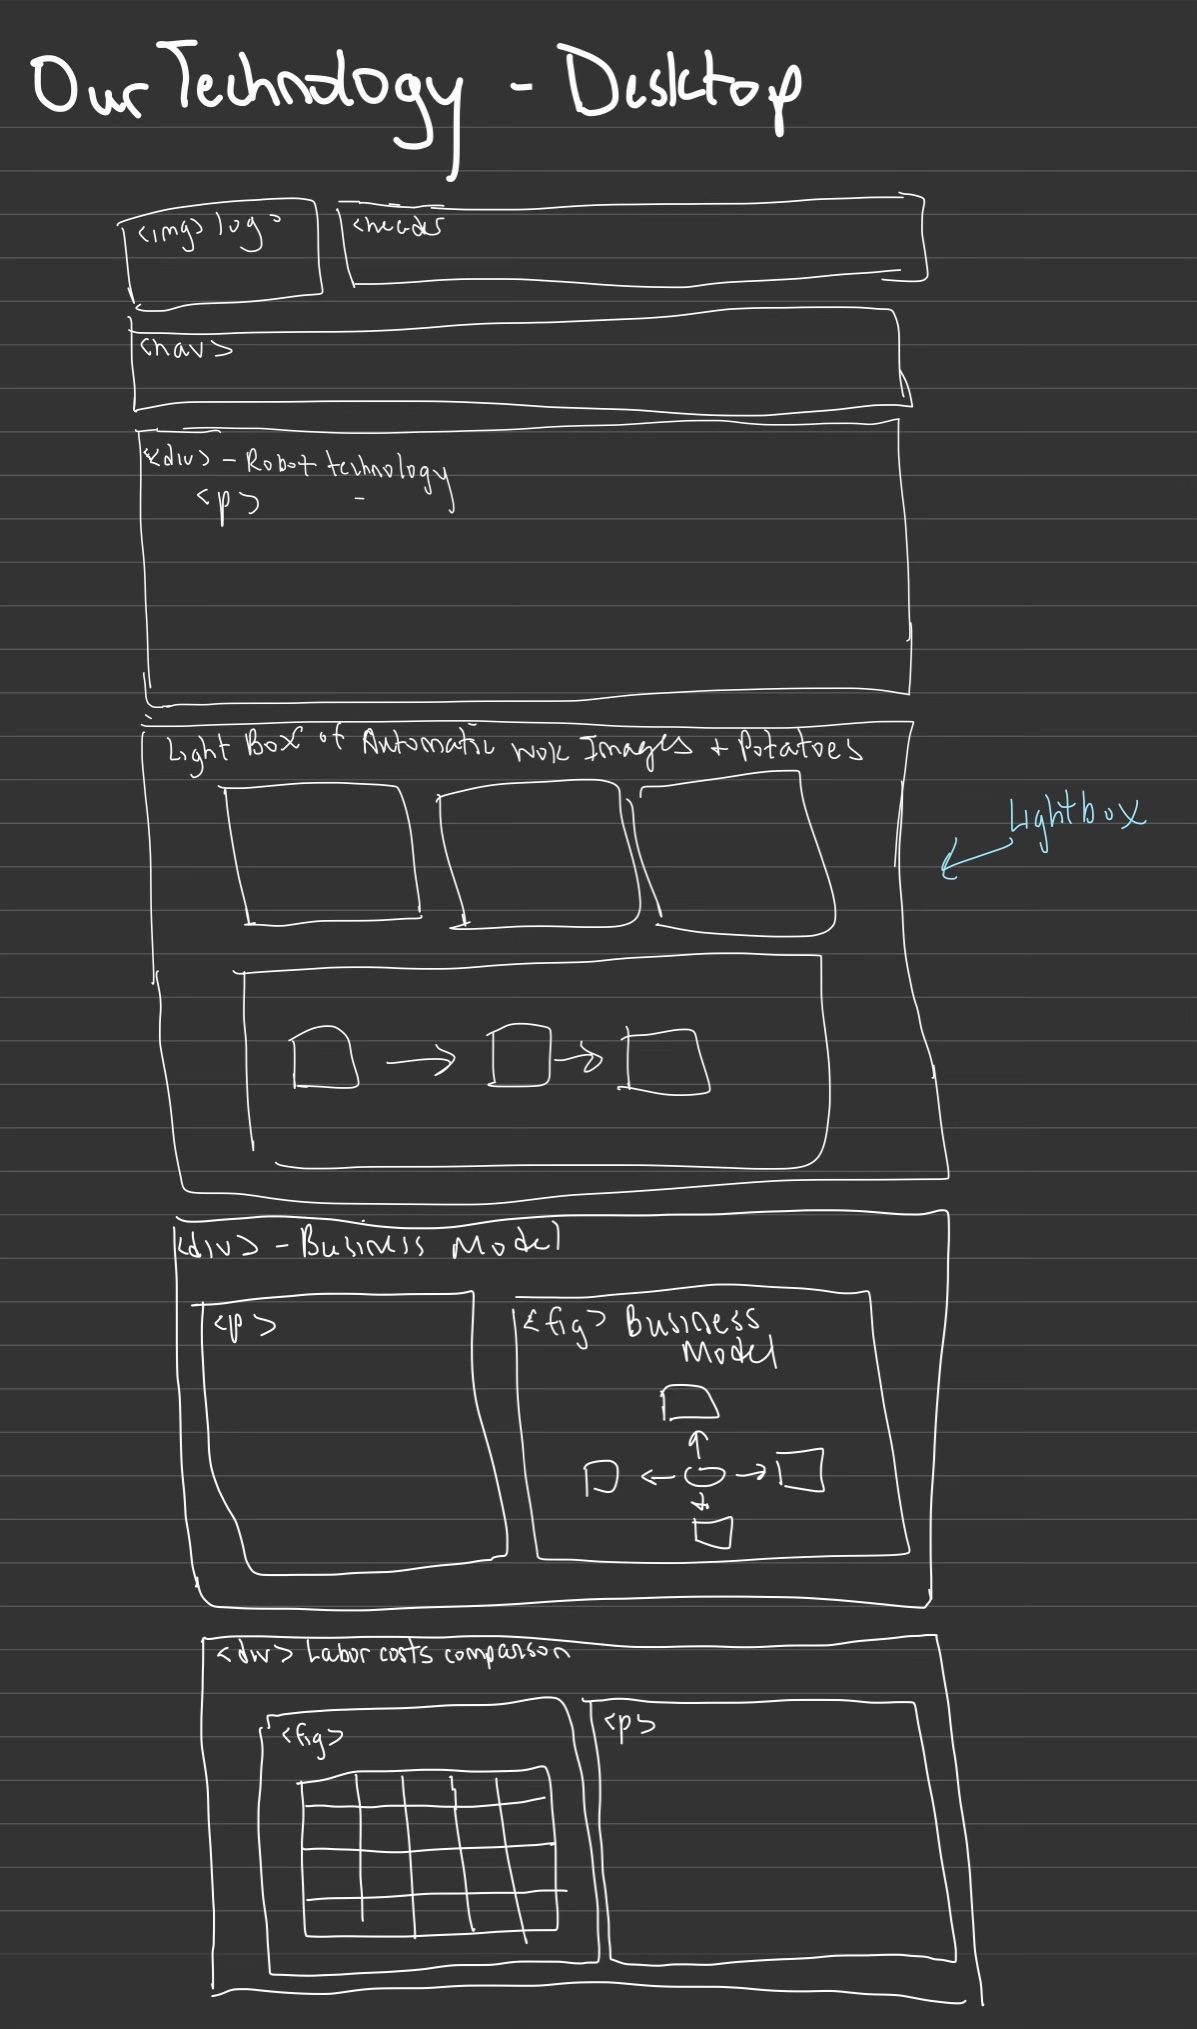 Our Technology - Desktop
<img> logo
<header
<nav>
<div> - Robot technology
<p> -
Light Box of Automatic wok Images + Potatoes
Lightbox
<div> - Business Model
<p>
<fig> Business
Model
<div> Labor costs comparison
<fig>
<p>